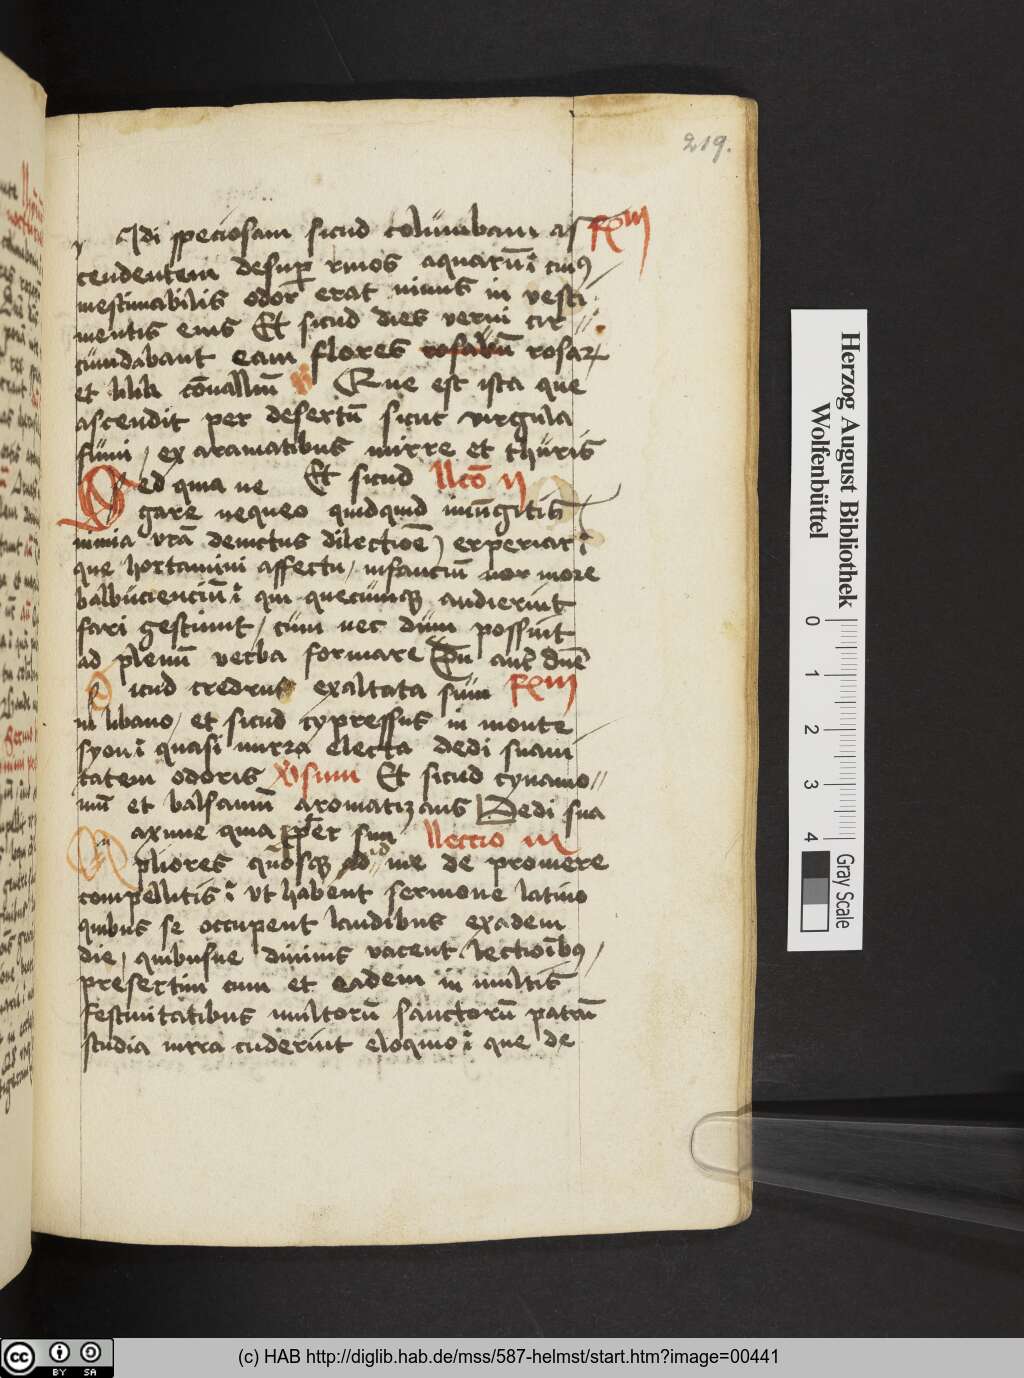 219.
v Idi speciosam sicud columbam as Rm
cendentem desuper rivos aquarū cuius
inestimabilis odor erat nimis in vesti
mentis eius Et sicud dies verni cir
cūmdabant eam flores rosarū rosar
et lilia cōuallium Que est ista que
ascendit per desertū sicut virgula
fumi ex aramatibus mirre et thuris
Sed quia ne Et sicud llcō ij
gare nequeo quidquid iniūgitis
nimia vrā deuictus dilectiōe experiar
que hortamini affectu infanciū mor more
balbuciencium qui quecumque audierint
fari gestiunt cum nec dum possunt
ad plenū verba formare Tu aut dnē
Sicud cedrus exaltata sum Rm
in libano et sicud cypressus in monte
syon quasi mirra electa dedi suavi
tatem odoris vsum Et sicud cynamo
mū et balsamū aromatizans Dedi sua
Maxime quia propter sim llectio iii
pliores quosque ad id me de promere
compellitis vt habent sermone latino
quibus se occupent laudibus exadem
die quibusue diuinis vacent lectioibus
presertim cum et eadem in multis
festiuitatibus multorū sanctorū patrū
studia mira cuderint eloquio que de
Herzog August Bibliothek
Wolfenbüttel
0 1 2 3 4
Gray Scale
cc BY SA
(c) HAB http://diglib.hab.de/mss/587-helmst/start.htm?image=00441